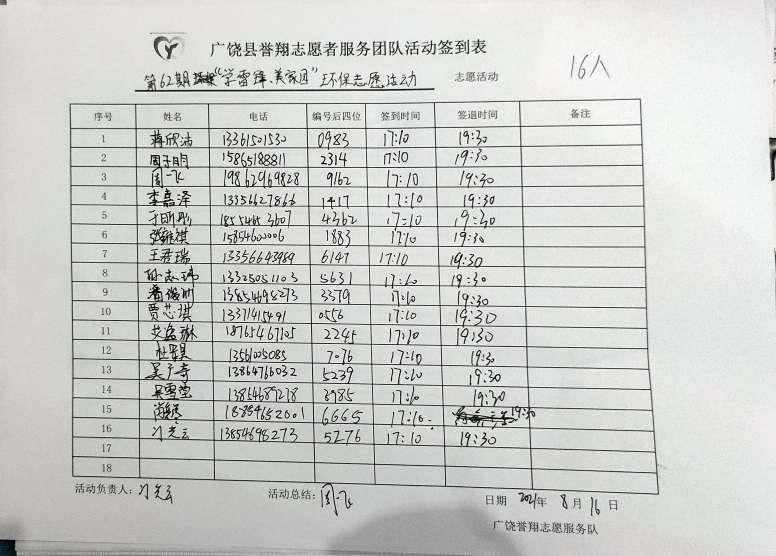 广饶县誉翔志愿者服务团队活动签到表
第62期 "学雷锋、美家园"环保志愿活动 志愿活动 16人
序号 姓名 电话 编号后四位 签到时间 签退时间 备注
1 蒋欣洁 13361501530 0983 17:10 19:30
2 周子玥 15865188811 2314 17:10 19:30
3 周一飞 19862969828 9162 17:10 19:30
4 李嘉泽 13356627866 1417 17:10 19:30
5 于昕彤 18554853607 4362 17:10 19:30
6 张维祺 15854600006 1883 17:10 19:30
7 王君瑞 13356643989 6147 17:10 19:30
8 孙志玮 13325051103 5631 17:10 19:30
9 13854698273 3379 17:10 19:30
10 贾芯琪 13371415491 0556 17:10 19:30
11 18765467105 2245 17:10 19:30
12 13561005085 7076 17:10 19:30
13 吴广奇 13864766032 5239 17:10 19:30
14 吴雪莹 13854689278 3985 17:10 19:30
15 18889652001 6665 17:10 19:30
16 刁光云 13854698273 5276 17:10 19:30
17
18
活动负责人: 刁光云 活动总结: 周一飞 日期 2021年 8月 16日
广饶誉翔志愿服务队